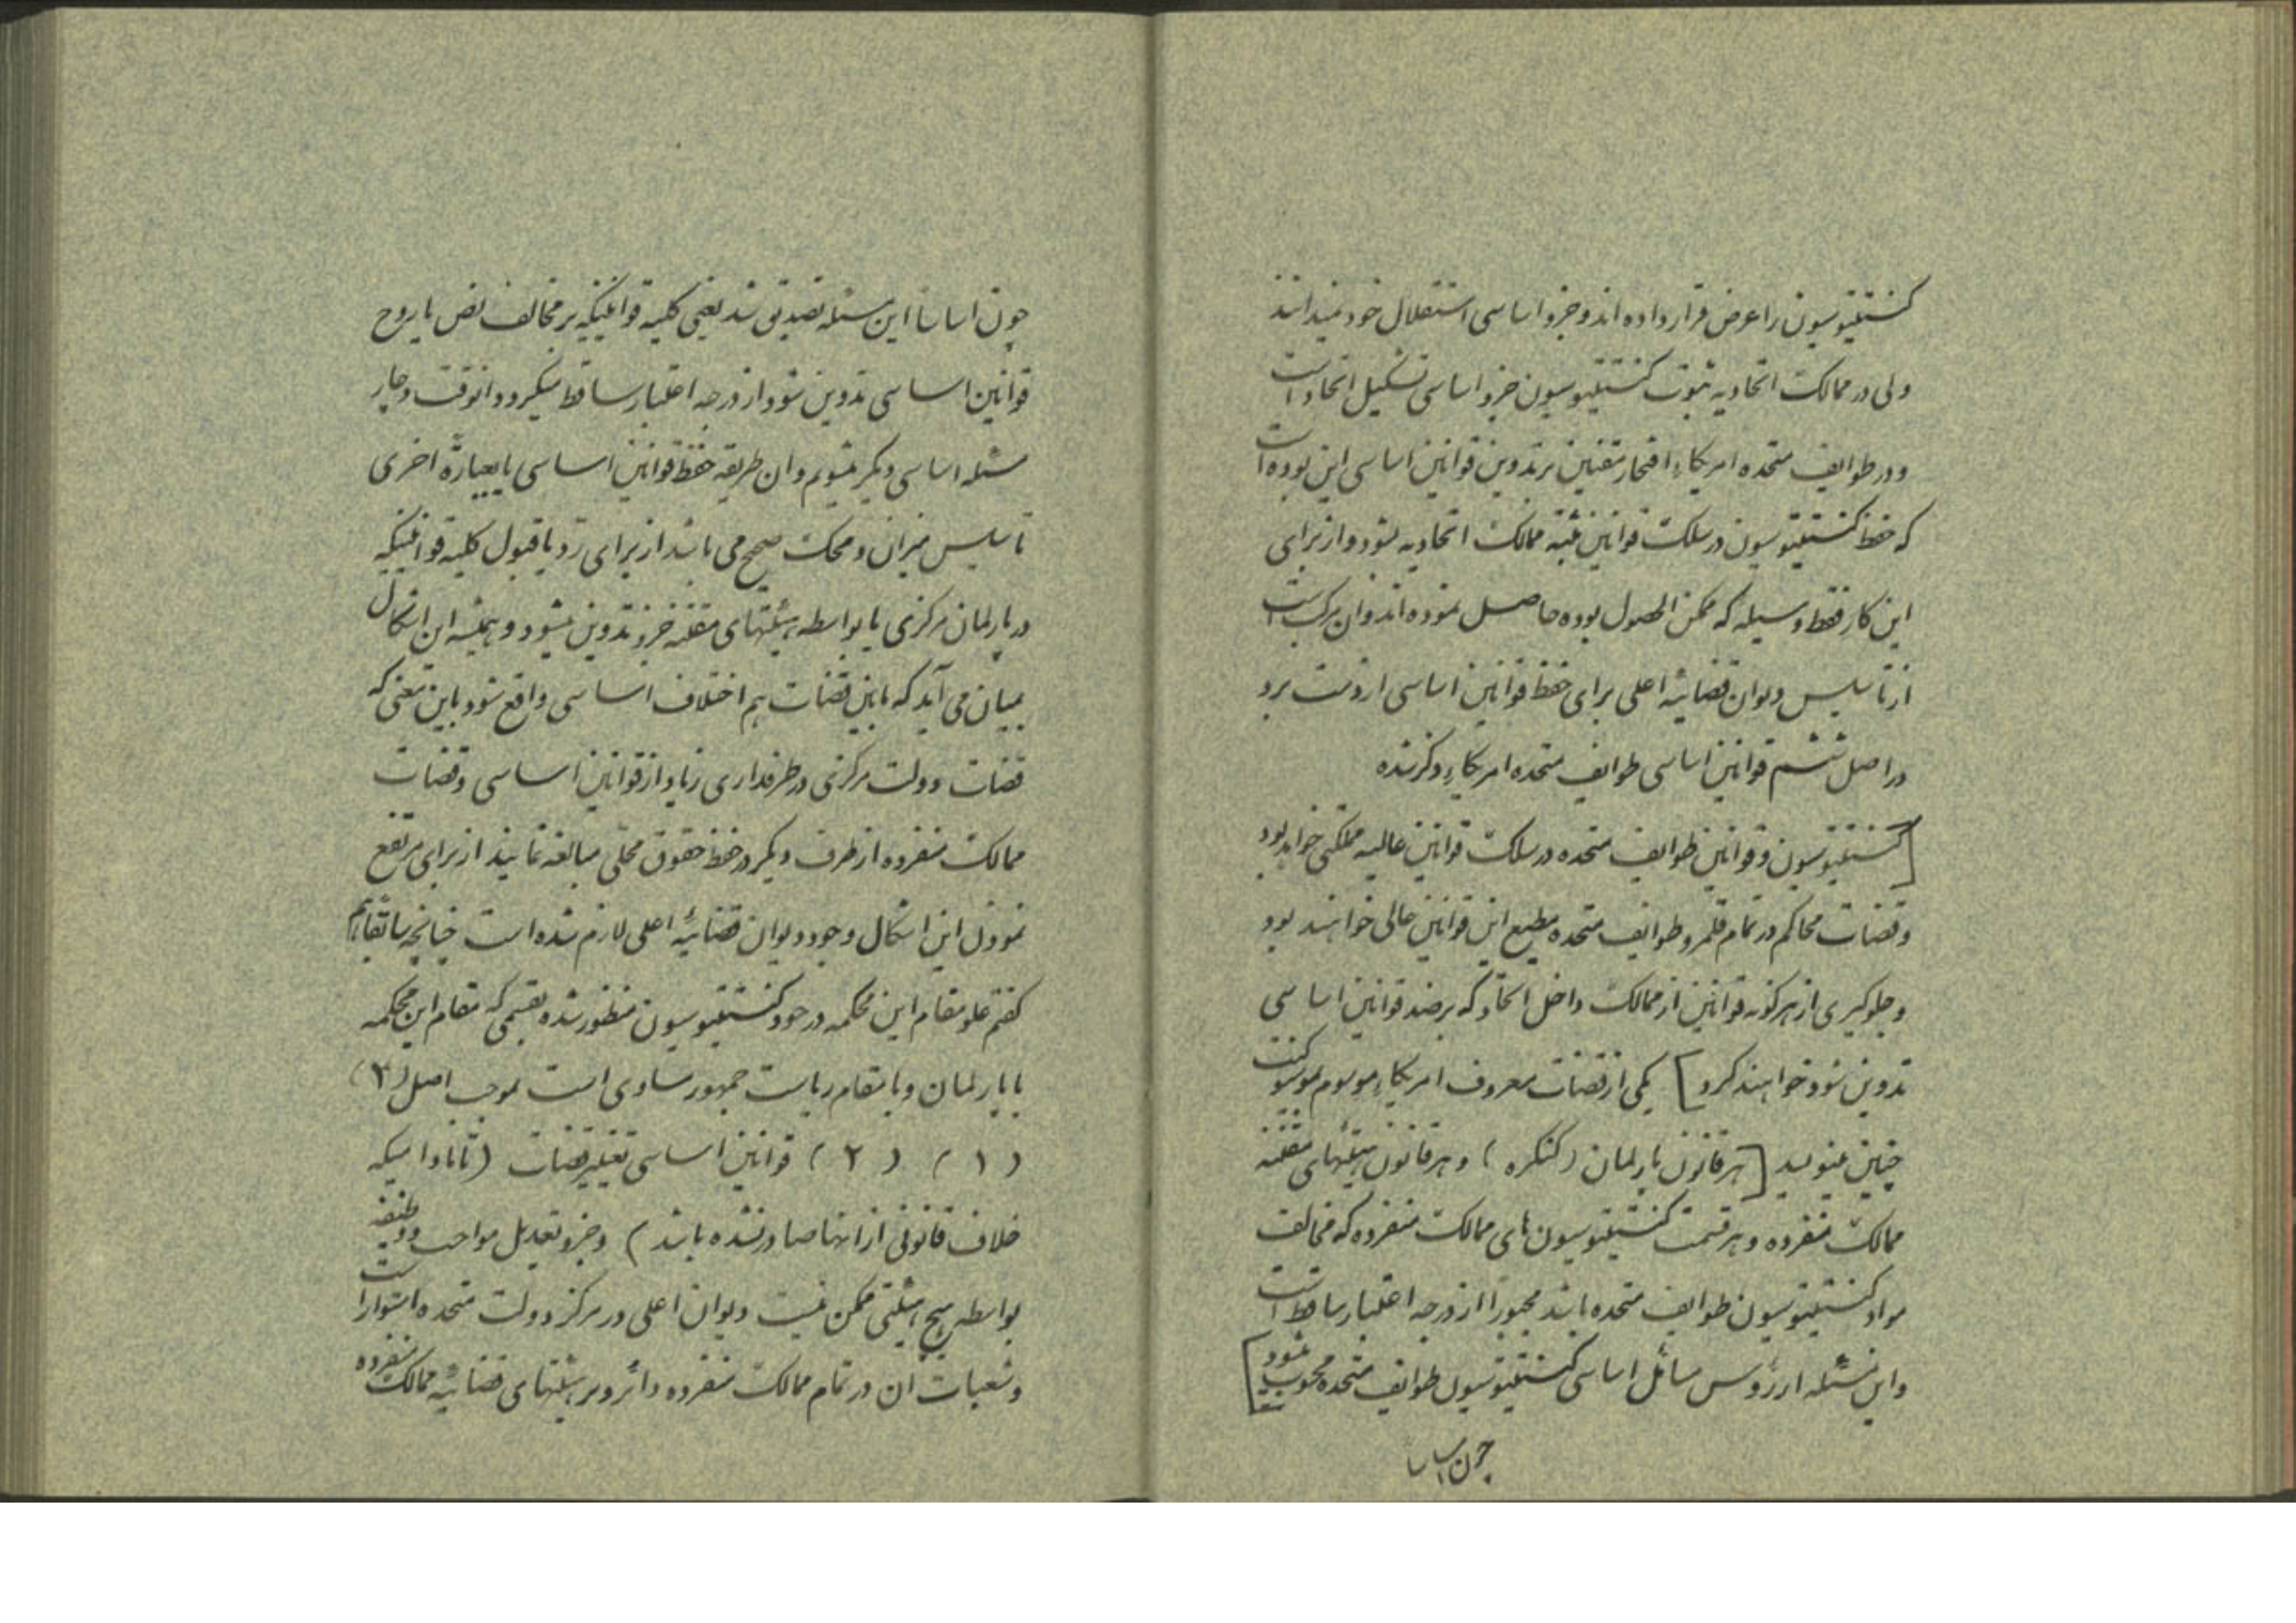 کنستیتیوسیون را عرض قرار داده اند و جزو اساسی استقلال خود نمیدانند
ولی در ممالک اتحادیه ثبوت کنستیتیوسیون جزو اساسی تشکیل اتحاد است
و در طوایف متحده امریکاء افتخار مقننین بر تدوین قوانین اساسی این بوده است
که حفظ کنستیتیوسیون در سلک قوانین مثبته ممالک اتحادیه بشود و از برای
این کار فقط وسیله که ممکن الحصول بوده حاصل نموده اند و آن مرکب است
از تأسیس دیوان قضائیه اعلی برای حفظ قوانین اساسی از دست برد
در اصل ششم قوانین اساسی طوایف متحده امریکاء ذکر شده
[کنستیتیوسیون و قوانین طوایف متحده در سلک قوانین عالیه مملکتی خواهد بود
و قضات محاکم در تمام قلمرو طوایف متحده مطیع این قوانین عالی خواهند بود
و جلوگیری از هر گونه قوانین از ممالک داخل اتحاد که بر ضد قوانین اساسی
تدوین شود خواهند کرد] یکی از قضات معروف امریکاء موسوم
چنین مینویسد [هر قانون پارلمان (کنگره) و هر قانون هیئتهای مقننه
ممالک منفرده و هر قسمت کنستیتیوسیون های ممالک منفرده که مخالف
مواد کنستیتیوسیون طوایف متحده باشد مجبوراً از درجه اعتبار ساقط است
و این مسئله از رؤس مسائل اساسی کنستیتیوسیون طوایف متحده محسوب میشود]
چون اساسا
چون اساسا این مسئله تصدیق شد یعنی کلیه قوانینیکه بر مخالف نص یا روح
قوانین اساسی تدوین شود از درجه اعتبار ساقط میگردد انوقت دچار
مسئله اساسی دیگر میشویم و ان طریقه حفظ قوانین اساسی یا بعبارة اخری
تأسیس میزان و محک صحیح می باشد از برای رد یا قبول کلیه قوانینیکه
در پارلمان مرکزی یا بواسطه هیئتهای مقننه جزو تدوین میشود و همیشه این اشکال
بمیان می آید که مابین قضات هم اختلاف اساسی واقع شود باین معنی که
قضات دولت مرکزی در طرفداری زیاد از قوانین اساسی و قضات
ممالک منفرده از طرف دیگر در حفظ حقوق محلی مبالغه نمایند از برای مرتفع
نمودن این اشکال وجود دیوان قضائیه اعلی لازم شده است چنانچه سابقا هم
گفتم علو مقام این محکمه در خود کنستیتیوسیون منظور شده بقسمی که مقام این محکمه
با پارلمان و با مقام ریاست جمهور مساوی است بموجب اصل (۳)
(۱) (۲) قوانین اساسی تغییر قضات (تا مادامیکه
خلاف قانونی از انها صادر نشده باشد) و جزو تعدیل مواجب و وظیفه
بواسطه هیچ هیئتی ممکن نیست دیوان اعلی در مرکز دولت متحده استوار است
و شعبات ان در تمام ممالک منفرده دائر و بر هیئتهای قضائیه ممالک منفرده